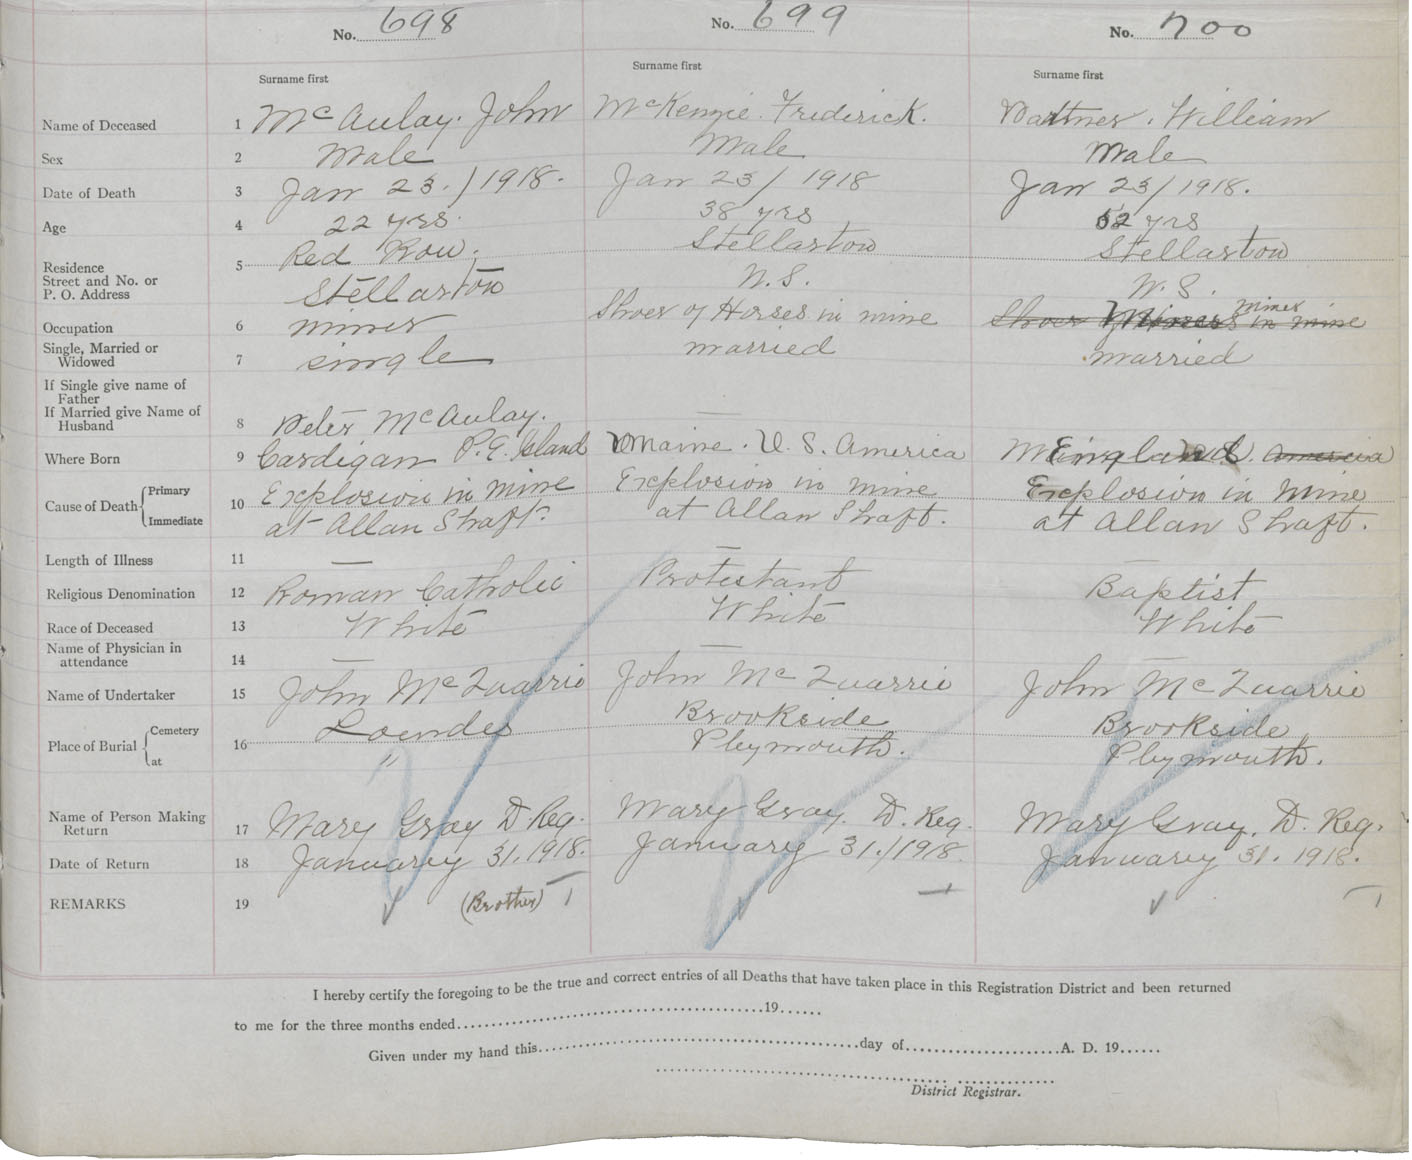 No. 698 No. 699 No. 700
Surname first Surname first Surname first
Name of Deceased 1 McAulay. John McKenzie. Frederick. William
Sex 2 Male Male Male
Date of Death 3 Jan 23./1918. Jan 23/1918 Jan 23/1918.
Age 4 22 yrs. 38 yrs 52 yrs
Residence 5 Red Row, Stellarton Stellarton
Street and No. or
P. O. Address Stellarton N.S. N.S.
Occupation 6 miner Shoer of Horses in mine Shoer of Horses in mine Miner
Single, Married or
Widowed 7 single married married
If Single give name of
Father
If Married give Name of
Husband 8 Peter McAulay. — —
Where Born 9 Cardigan P.E. Island Maine. U.S. America England America
Cause of Death { Primary Immediate 10 Explosion in mine Explosion in mine Explosion in mine
at Allan Shaft. at Allan Shaft. at Allan Shaft.
Length of Illness 11 — —
Religious Denomination 12 Roman Catholic Protestant Baptist
Race of Deceased 13 White White White
Name of Physician in
attendance 14 — — —
Name of Undertaker 15 John McQuarrie John McQuarrie John McQuarrie
Place of Burial { Cemetery at 16 Lourdes Brookside Brookside
" Plymouth. Plymouth.
Name of Person Making
Return 17 Mary Gray D. Reg. Mary Gray. D. Reg. Mary Gray, D. Reg.
Date of Return 18 January 31. 1918. January 31./1918. January 31. 1918.
REMARKS 19 (Brother)
I hereby certify the foregoing to be the true and correct entries of all Deaths that have taken place in this Registration District and been returned
to me for the three months ended 19
Given under my hand this day of A. D. 19
District Registrar.